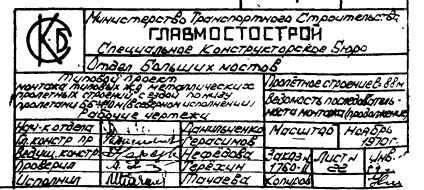 Министерство Транспортного Строительства
ГЛАВМОСТОСТРОЙ
Специальное Конструкторское Бюро
Отдел Больших мостов
Типовой проект
монтажа типовых ж.д. металлических
пролетных строений с ездой по низу
пролетами 66-110м (в северном исполнении)
Рабочие чертежи
Пролётное строение ℓ=88м
Ведомость последователь-
ности монтажа (продолжение)
Нач-к отдела Данильченко Масштаб Ноябрь
Гл. констр. пр Герасимов 1970г.
Ведущ. констр Нефёдова Заказ Лист Инв.
Проверил Терехин 1760-
Исполнил Тачаева Копиров